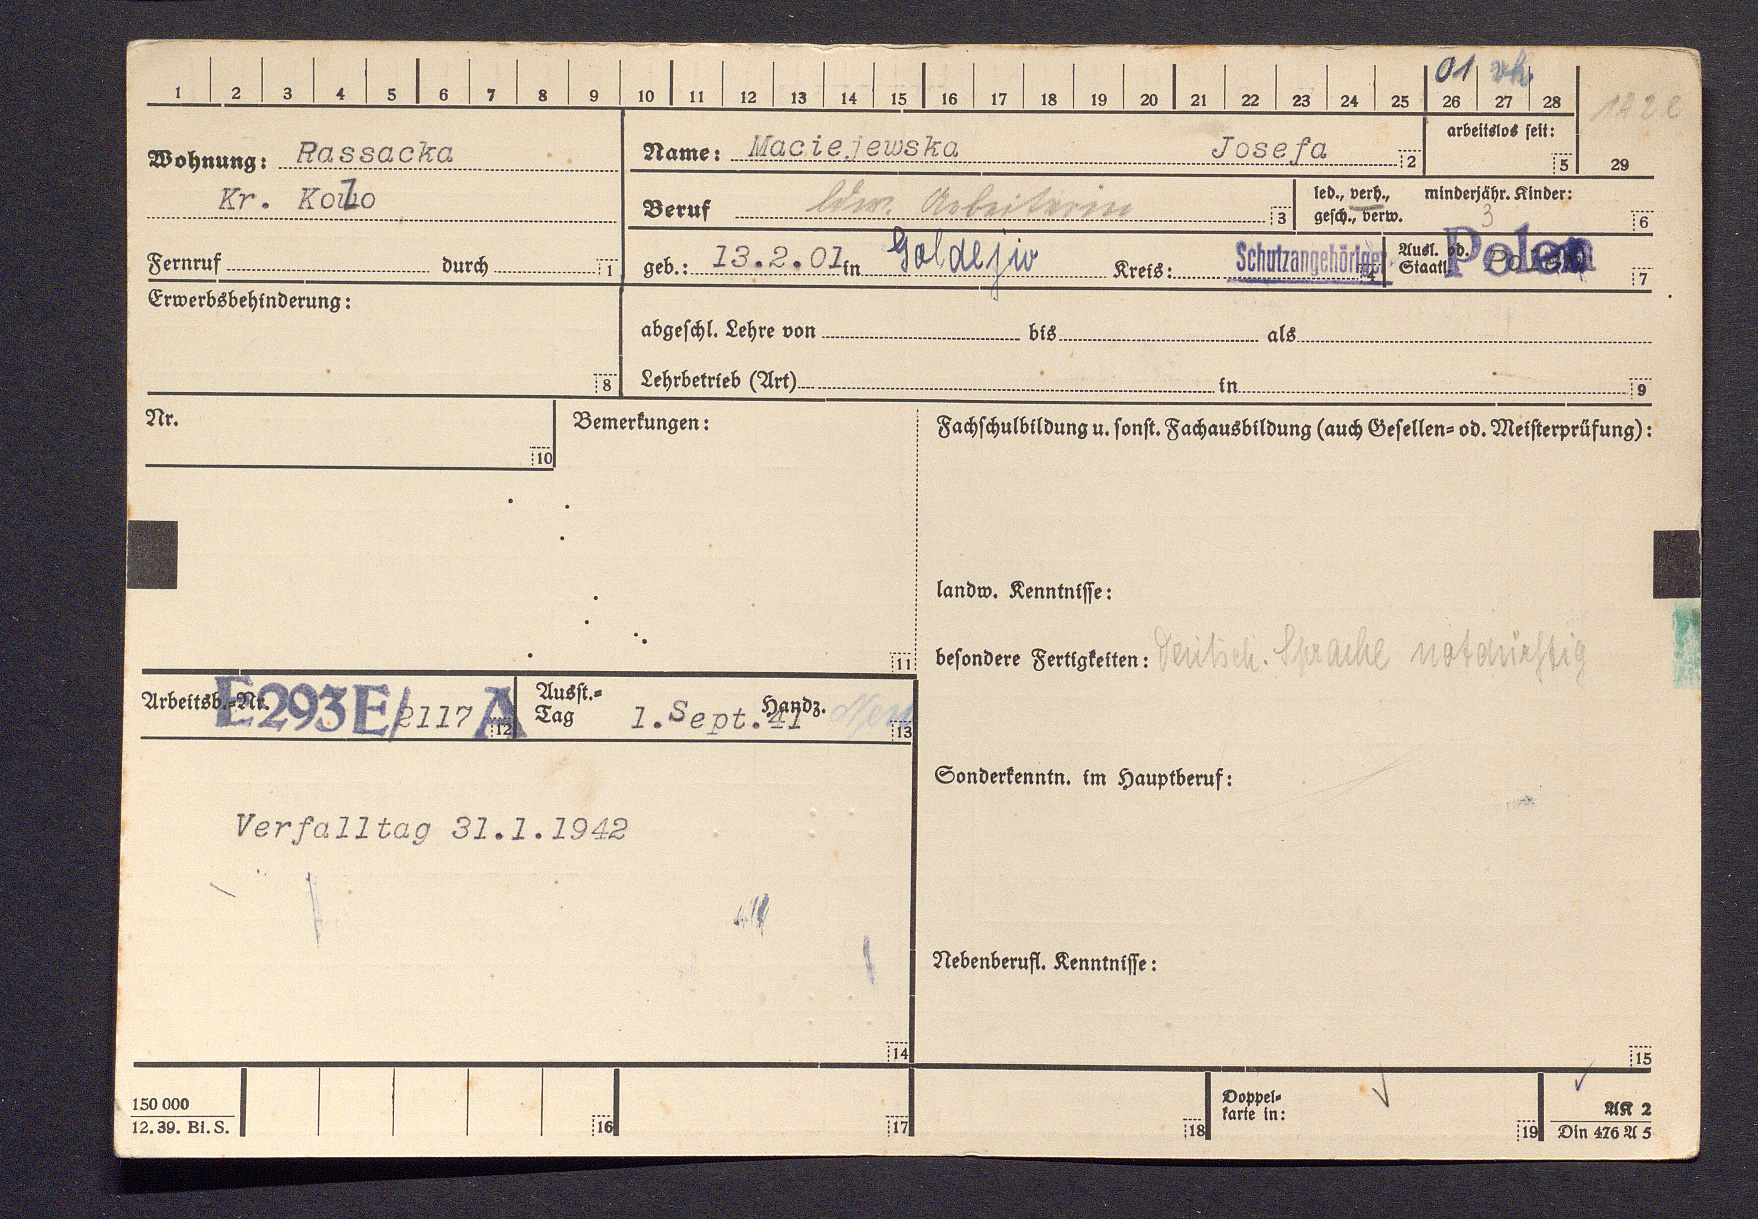 01 vh
1 2 3 4 5 6 7 8 9 10 11 12 13 14 15 16 17 18 19 20 21 22 23 24 25 26 27 28
arbeitslos seit:
5 29
Wohnung: Rassacka
Kr. Kolo
Fernruf durch 1
Name: Maciejewska Josefa 2
Beruf ldw. Arbeiterin 3
led., verh., minderjähr. Kinder:
gesch., verw. 3 6
geb.: 13.2.01 in Kreis: Schutzangehöriger 4
Ausl. od.
Staatl. Polen 7
Erwerbsbehinderung:
8
abgeschl. Lehre von bis als
Lehrbetrieb (Art) in 9
Nr.
10
Bemerkungen:
11
Fachschulbildung u. sonst. Fachausbildung (auch Gesellen= od. Meisterprüfung):
landw. Kenntnisse:
besondere Fertigkeiten: Deutsch. Sprache notdürftig
Sonderkenntn. im Hauptberuf:
Nebenberufl. Kenntnisse:
15
Arbeitsb.=Nr. E293E/2117 A 12
Ausst.=
Tag 1.Sept.41 Handz. 13
Verfalltag 31.1.1942
14
150 000
12.39. Bl. S.
16 17 18
Doppel=
karte in:
19
AK 2
Din 476 A 5